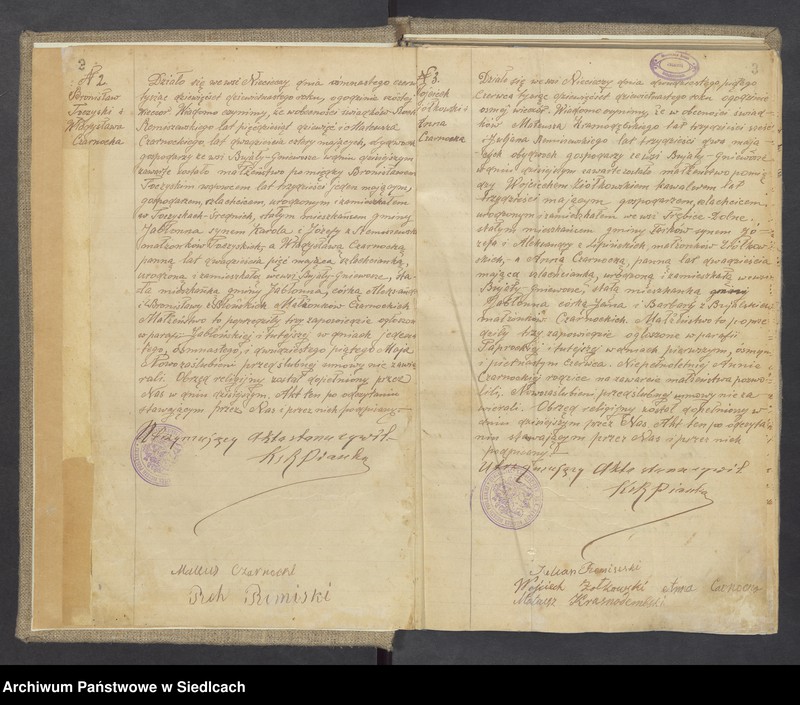 2
№ 2.
Bronisław
Toczyski i
Władysława
Czarnocka
Działo się we wsi Nieciczy dnia
tysiąc dziewięćset dziewiętnastego roku, o godzinie szóstej
wieczór. Wiadomo czynimy, że w obecności świadków Rocha
Remiszewskiego lat pięćdziesiąt dziewięć i Mateusza
Czarnockiego, lat dwadzieścia cztery mających,
gospodarzy ze wsi Bujały-Gniewosze w dniu dzisiejszym
zawarte zostało małżeństwo pomiędzy Bronisławem
Toczyskim wdowcem lat trzydzieści jeden mającym,
gospodarzem, szlachcicem, urodzonym i zamieszkałym
w Toczyskach-Średnich, stałym mieszkańcem gminy
Jabłonna synem Karola i Józefy z
małżonków Toczyskich, a Władysławą Czarnocką
panną lat dwadzieścia pięć mającą szlachcianką,
urodzoną i zamieszkałą we wsi Bujały-Gniewosze, sta-
łą mieszkanką gminy Jabłonna, córką
i Bronisławy z Małżonków Czarnockich
Małżeństwo to poprzedziły trzy zapowiedzie ogłoszone
w parafii Jabłońskiej i tutejszej w dniach jedena-
stego, ósmnastego, i dwudziestego piątego Maja
Nowozaślubieni przedślubnej umowy nie zawie-
rali. Obrzęd religijny został dopełniony przez
Nas w dniu dzisiejszym. Akt ten po odczytaniu
stawającym przez Nas i przez nich podpisany.
Utrzymujący Akta stanu cywil.
Ks R Pianka
Mateusz Czarnocki
Roh Rimiski
3
№ 3.
Wojciech
Ziółkowski i
Anna
Czarnocka
Działo się we wsi Nieciczy dnia dwudziestego piątego
Czerwca tysiąc dziewięćset dziewiętnastego roku o godzinie
ósmej wieczór. Wiadomo czynimy, że w obecności świad-
ków Mateusza Krasnodębskiego lat trzydzieści sześć
i Juljana Remiszewskiego lat trzydzieści dwa mają-
cych obydwóch gospodarzy ze wsi Bujały-Gniewosze
w dniu dzisiejszym zawarte zostało małżeństwo pomię-
dzy Wojciechem Ziółkowskim kawalerem lat
trzydzieści mającym gospodarzem, szlachcicem
urodzonym i zamieszkałym we wsi Trębice Dolne
stałym mieszkańcem gminy synem Jó-
zefa i Aleksandry z Lipińskich, małżonków Ziółkow-
skich, a Anną Czarnocką, panną lat dwadzieścia
mającą szlachcianką, urodzoną i zamieszkałą we wsi
Bujały-Gniewosze, stałą mieszkanką gminy
Jabłonna córką Jana i Barbary z
małżonków Czarnockich. Małżeństwo to poprze-
dziły trzy zapowiedzie ogłoszone w parafii
Paprockiej i tutejszej w dniach pierwszym, ósmym
i piętnastym Czerwca. Niepełnoletniej Annie
Czarnockiej rodzice na zawarcie małżeństwa pozwo-
lili. Nowozaślubieni przedślubnej umowy nie za-
wierali. Obrzęd religijny został dopełniony w
dniu dzisiejszym przez Nas. Akt ten po odczyta-
niu stawającym przez Nas i przez nich
podpisany.
Utrzymujący Akta stanu cywil
Ks R Pianka
Julian Remiszeski
Wojciech Zołkowski Anna Carnocka
Mateusz Krasnodembski
Archiwum Państwowe w Siedlcach